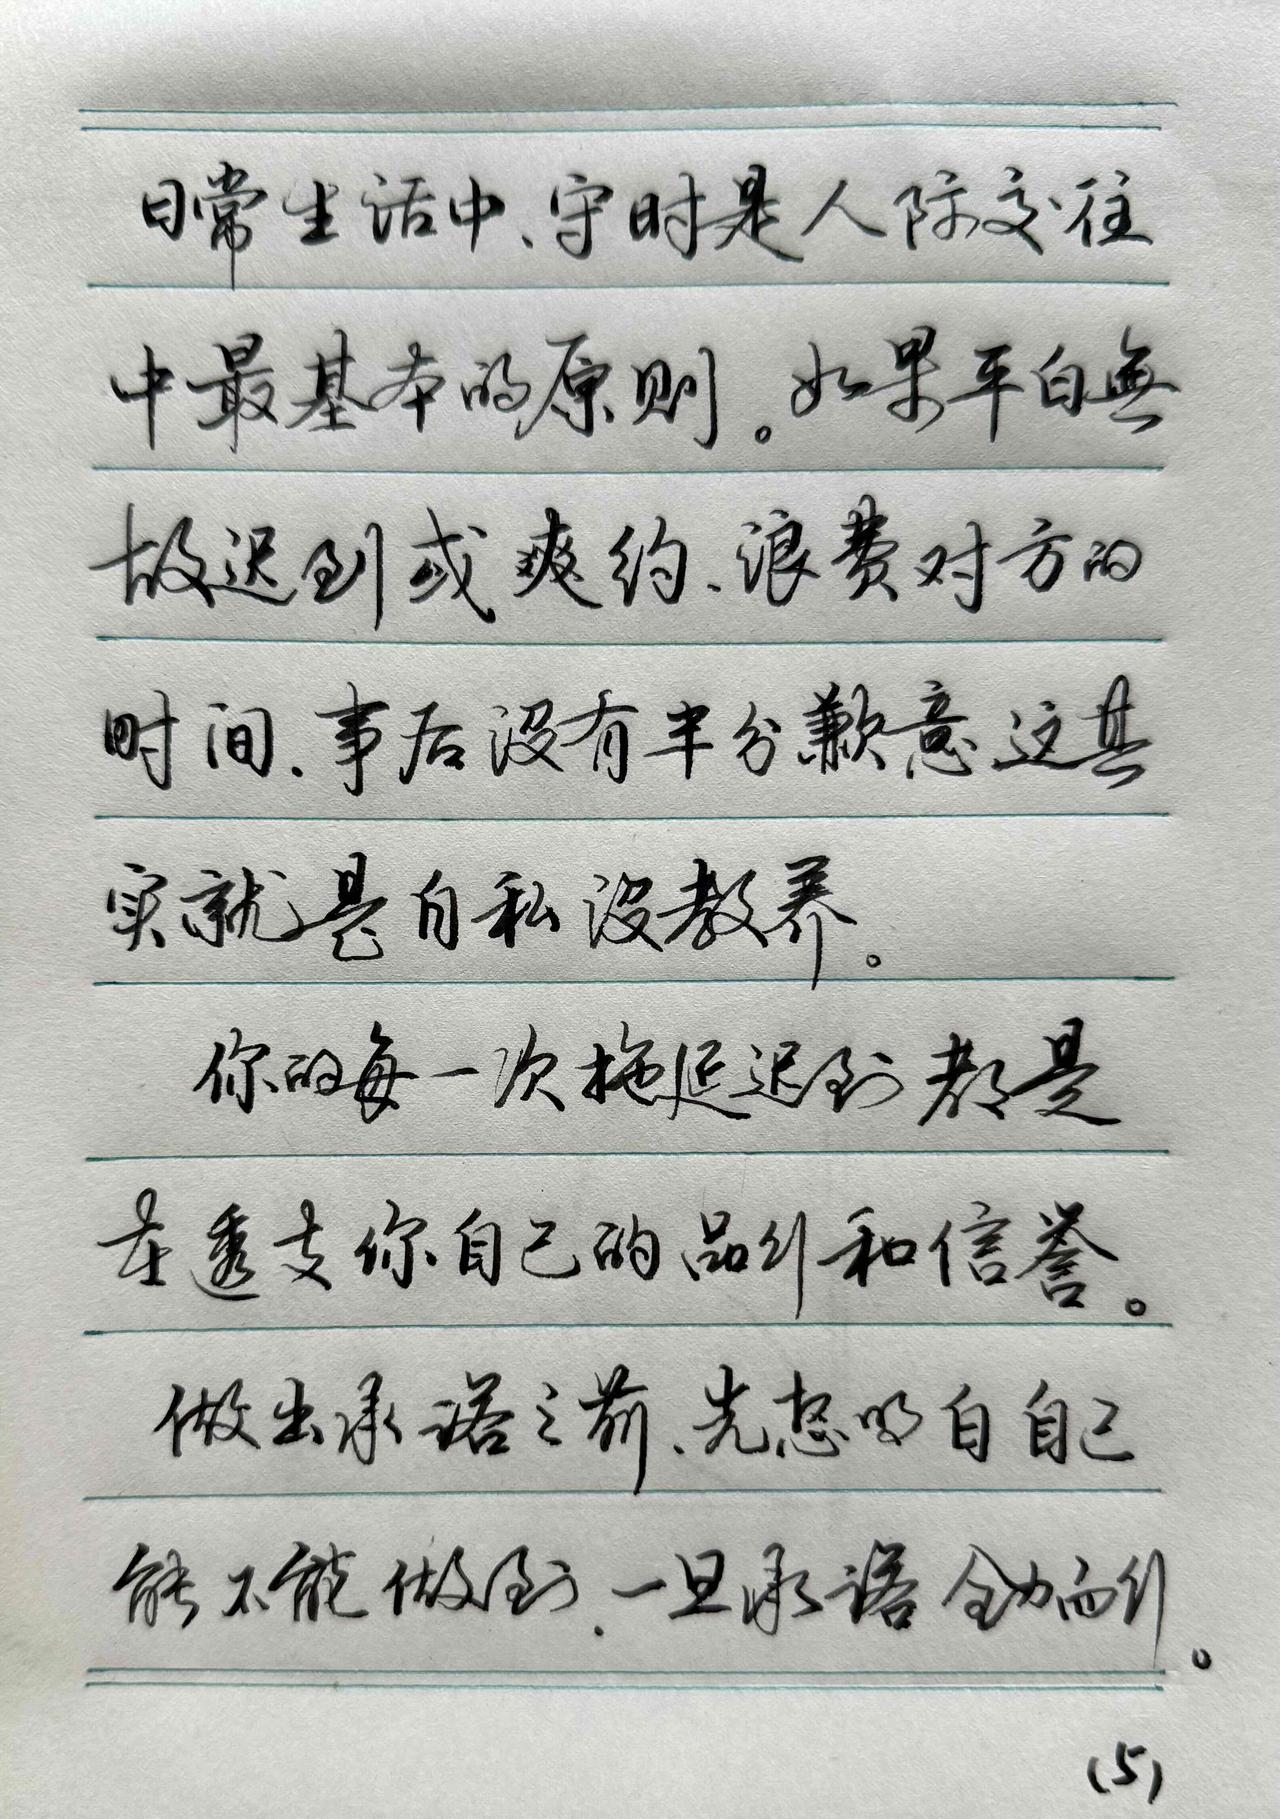 日常生活中、守时是人际交往
中最基本的原则。如果平白無
故迟到或爽约、浪费对方的
时间、事后没有半分歉意这其
实就是自私没教养。
你的每一次拖延迟到都是
在透支你自己的品行和信誉。
做出承诺之前、先想明白自己
能不能做到、一旦承诺全力而行。
(5)